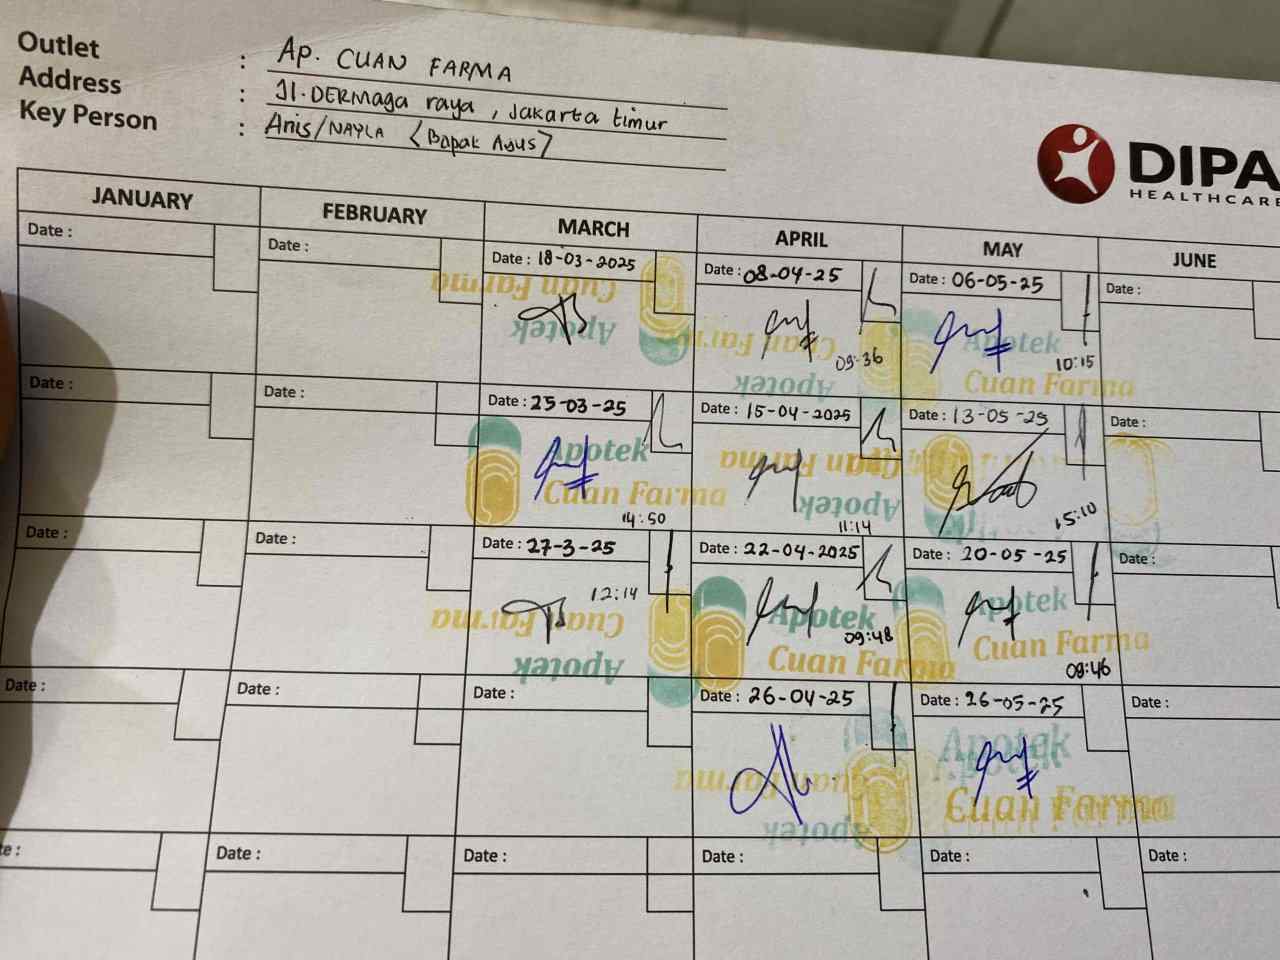 Outlet : Ap. CUAN FARMA
Address : Jl. DERMaga raya, Jakarta timur
Key Person : Anis/NAYLA <Bapak Agus>
DIPA
HEALTHCARE
JANUARY FEBRUARY MARCH APRIL MAY JUNE
Date : Date : Date : 18-03-2025 Date : 08-04-25 Date : 06-05-25 Date :
Cuan Farma
Apotek
Cuan Farma
Apotek
09:36
Apotek
Cuan Farma
10:15
Date : Date : Date : 25-03-25 Date : 15-04-2025 Date : 13-05-25 Date :
Apotek
Cuan Farma
14:50
Cuan Farma
Apotek
11:14
15:10
Date : Date : Date : 27-3-25 Date : 22-04-2025 Date : 20-05-25 Date :
12:14
Cuan Farma
Apotek
Apotek
09:48
Cuan Farma
Apotek
Cuan Farma
09:46
Date : Date : Date : Date : 26-04-25 Date : 26-05-25 Date :
Cuan Farma
Apotek
Apotek
Cuan Farma
Date : Date : Date : Date : Date :